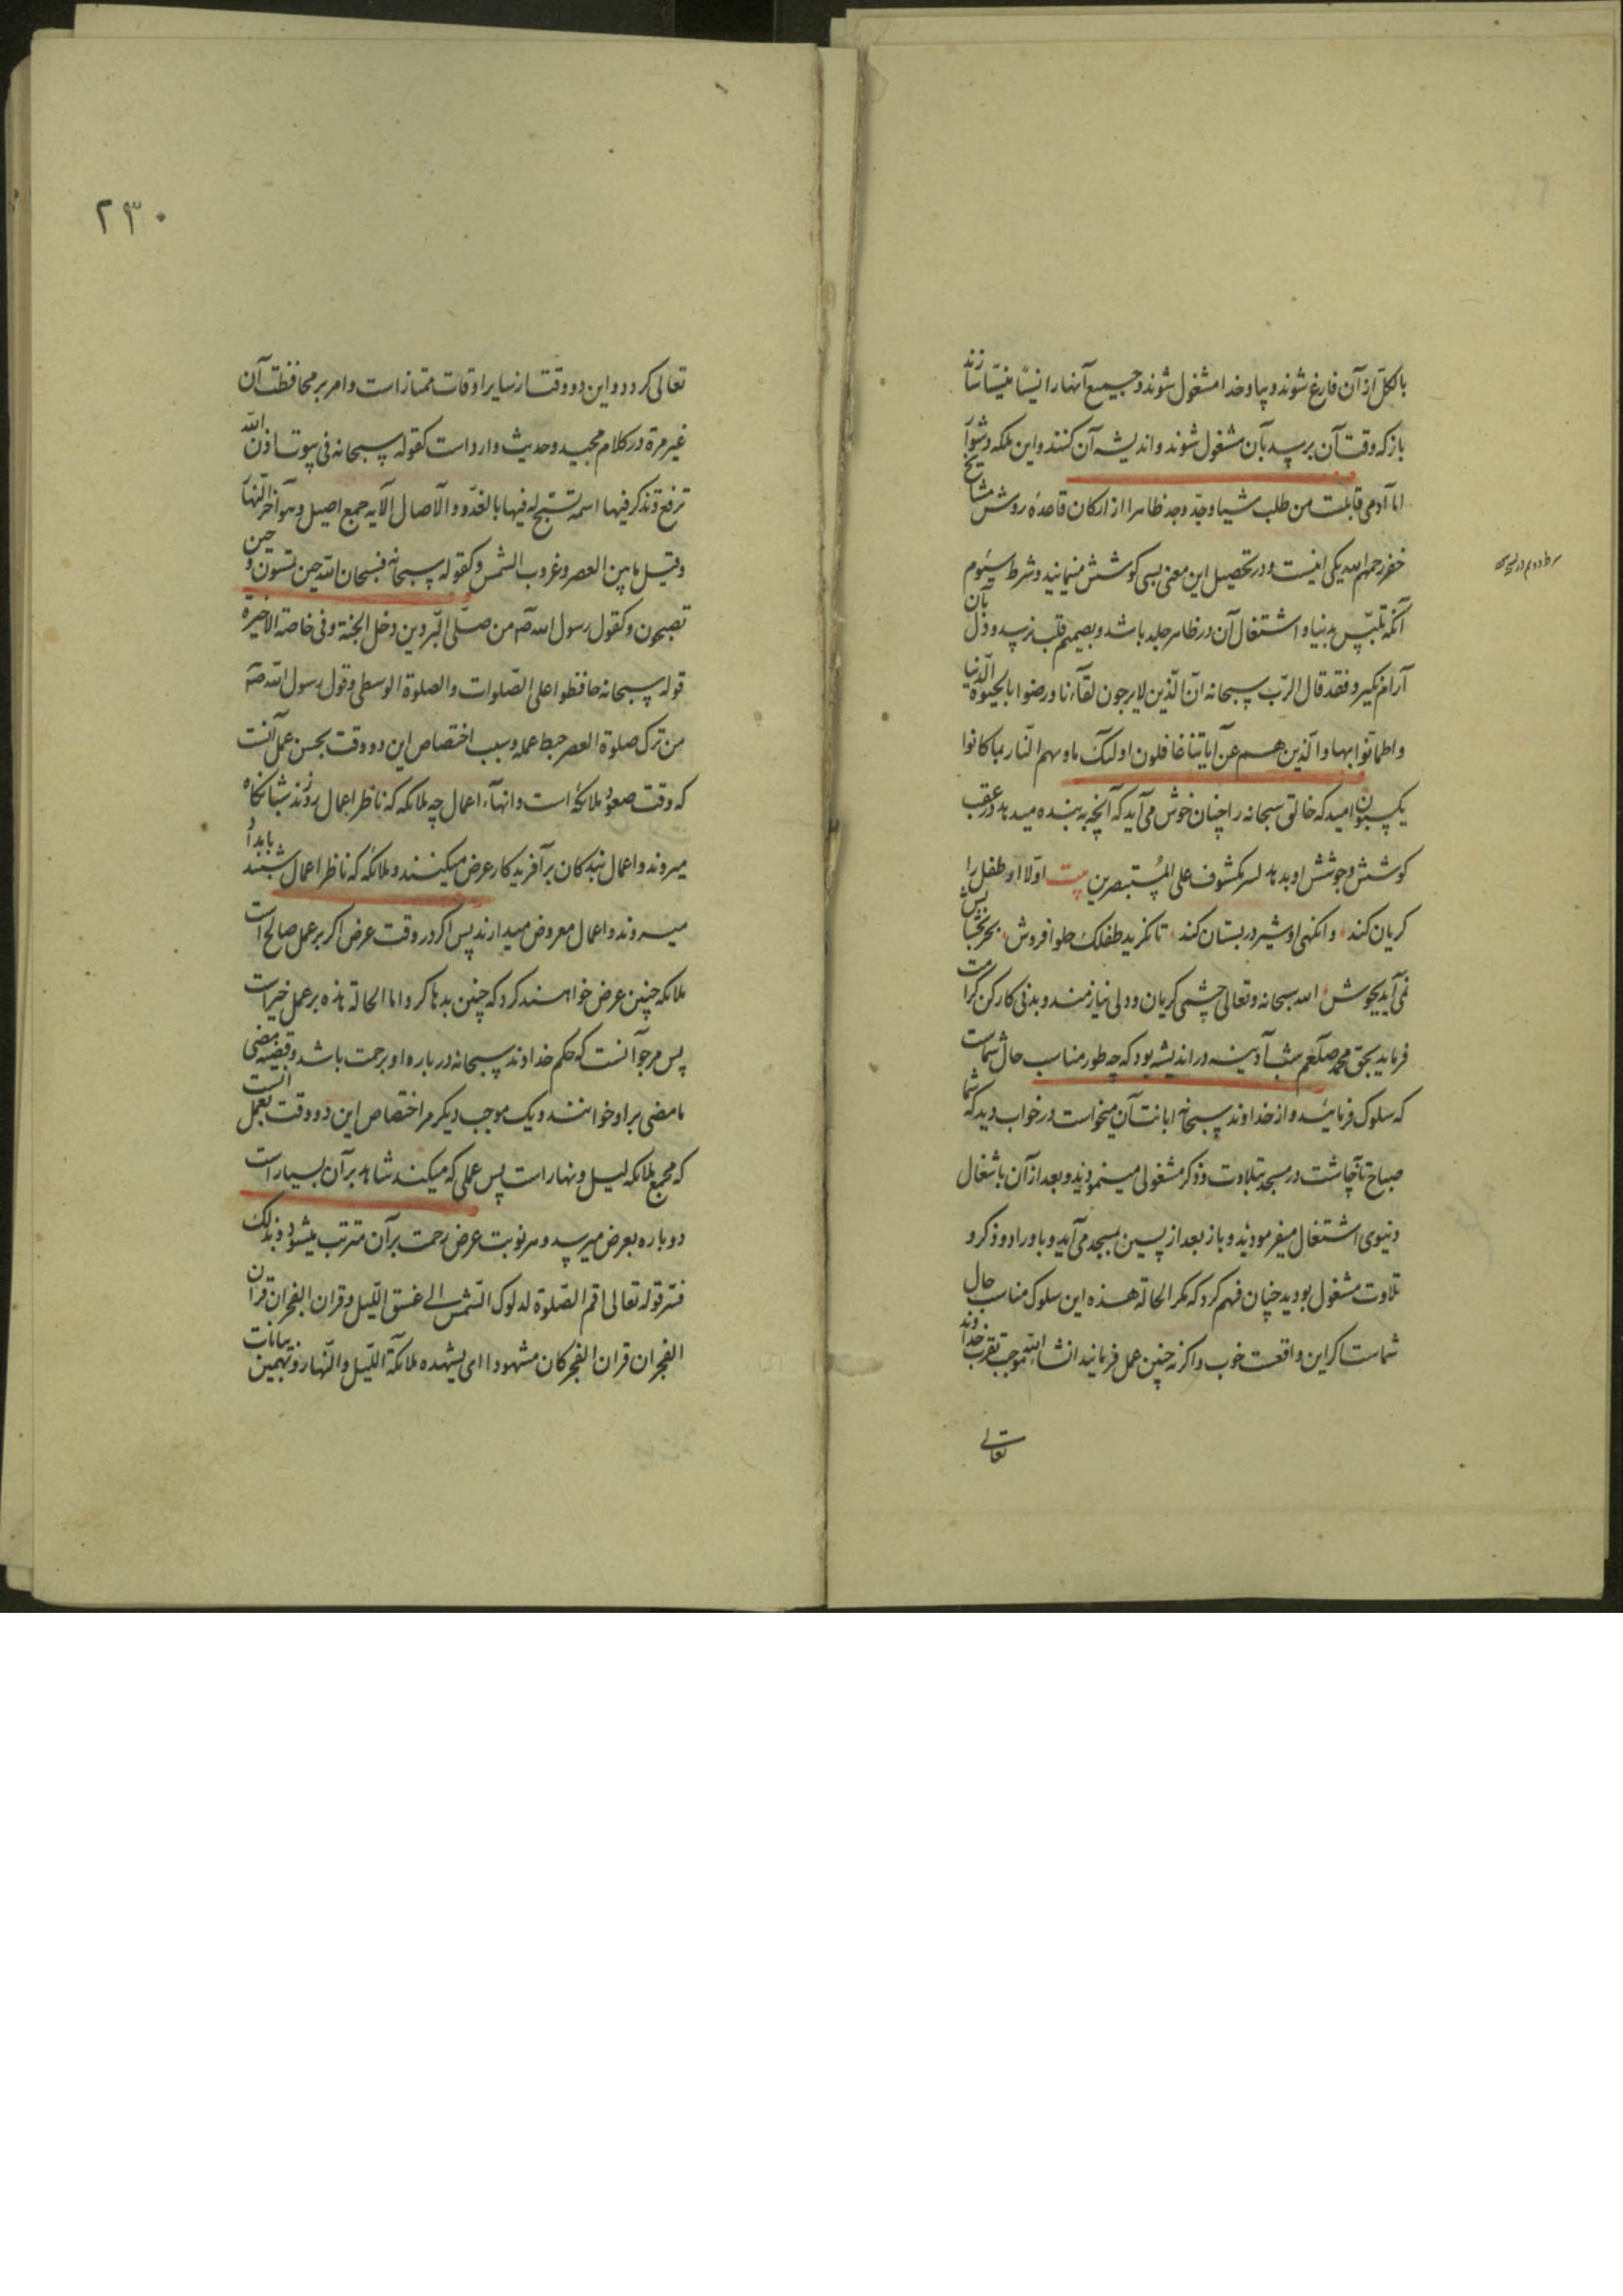 بالکل از آن فارغ شوند و بیاد خدا مشغول شوند و جمیع آنها را نسیا منسیا سازند
باز که وقت آن برسد بآن مشغول شوند و اندیشه آن کنند و این ملکه دشوار
اما آدمی قابلست من طلب شیئا وجد وجد ظاهرا از ارکان قاعده روش مشایخ
رحمهم الله یکی اینست و در تحصیل این معنی بسی کوشش مینمایند و شرط سیوم
شرط دوم در
آنکه تلبس بدنیا و اشتغال آن در ظاهر جلد باشد و بصمیم قلب نرسد و دل بآن
آرام نگیرد فقد قال الرب سبحانه ان الذین لا یرجون لقاءنا و رضوا بالحیوة الدنیا
و اطمانوا بها و الذین هم عن ایاتنا غافلون اولئک ماویهم النار بما کانوا
یکسبون امید که خالق سبحانه را چنان خوش می آید که آنچه به بنده میدهد در عقب
کوشش و جوشش او بدهد لسر مکشوف علی المستبصرین بیت اولا او طفل را
گریان کند و انگهی او شیر در بستان کند تا نگرید طفلک حلوا فروش بحر بخشایش
نمی آید بجوش الله سبحانه و تعالی چشمی گریان و دلی نیازمند و بدنی کارکن کرامت
فرماید بحق محمد صلعم شب آدینه در اندیشه بود که چه طور مناسب حال شماست
که سلوک فرمائید و از خداوند سبحانه ابانت آن میخواست در خواب دید که شما
صباح تا چاشت در مسجد بتلاوت و ذکر مشغولی مینمودید و بعد از آن باشغال
دنیوی اشتغال میفرمودید و باز بعد از پسین بمسجد می آیید و باوراد و ذکر و
تلاوت مشغول بودید چنان فهم کرد که مگر الحالة هذه این سلوک مناسب حال
شماست اگر این واقعست خوب و اگر نه چنین عمل فرمائید انشاالله موجب تقرب خداوند
تعالی
۲۳۰
تعالی گردد و این دو وقت از سایر اوقات ممتاز است و امر بر محافظت آن
غیر مرة در کلام مجید و حدیث وارد است کقوله سبحانه فی بیوت اذن الله
ترفع و تذکر فیها اسمه تسبح له فیها بالغدو و الآصال الآیه جمع اصیل و هو آخر النهار
و قیل ما بین العصر و غروب الشمس و کقوله سبحانه فسبحان الله حین تمسون و حین
تصبحون و کقول رسول الله صم من صلی البردین دخل الجنة و فی خاصة الاخیرة
قوله سبحانه حافظوا علی الصلوات و الصلوة الوسطی و قول رسول الله صم
من ترک صلوة العصر حبط عمله و سبب اختصاص این دو وقت بحسن عمل آنست
که وقت صعود ملائکه است و انهآء اعمال چه ملائکه که ناظر اعمال روزند شبانگاه
میروند و اعمال بندگان بر آفریدکار عرض میکنند و ملائکه که ناظر اعمال شبند بامداد
میروند و اعمال معروض میدارند پس اگر در وقت عرض اگر بر عمل صالح است
ملائکه چنین عرض خواهند کرد که چنین بدها کرد اما الحالة هذه بر عمل خیر است
پس مرجو آنست که حکم خداوند سبحانه در باره او برحمت باشد و قضیه مضی
مامضی بر او خوانند و یک موجب دیگر مر اختصاص این دو وقت بعمل آنست
که مجمع ملائکه لیل و نهار است پس عملی که میکند شاهد بر آن بسیار است
دو باره بعرض میرسد و هر نوبت عرض رحمت بر آن مترتب میشود و بذلک
فسر قوله تعالی اقم الصلوة لدلوک الشمس الی غسق اللیل و قران الفجر ان قران
الفجر ان قران الفجر کان مشهودا ای یشهده ملائکة اللیل و النهار و بهمین بیانات